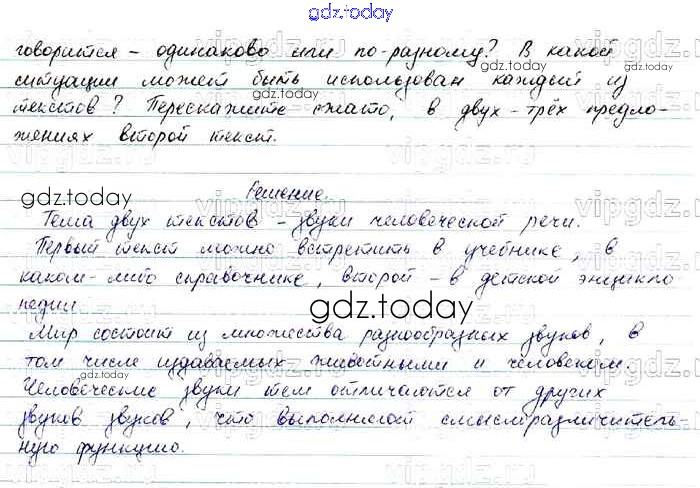 gdz.today
говорится - одинаково или по-разному? В какой
ситуации может быть использован каждый из
gdz.today
текстов? Перескажите сжато, в двух-трёх предло-
жениях второй текст.
Решение.
gdz.today
Тема двух текстов - звуки человеческой речи.
Первый текст можно встретить в учебнике, в
каком-либо справочнике, второй - в детской энцикло
gdz.today
педии.
gdz.today
Мир состоит из множества разнообразных звуков, в
том числе издаваемых животными и человеком.
gdz.today
Человеческие звуки тем отличаются от других
звуков звуков, что выполняют смыслоразличитель-
gdz.today
ную функцию.